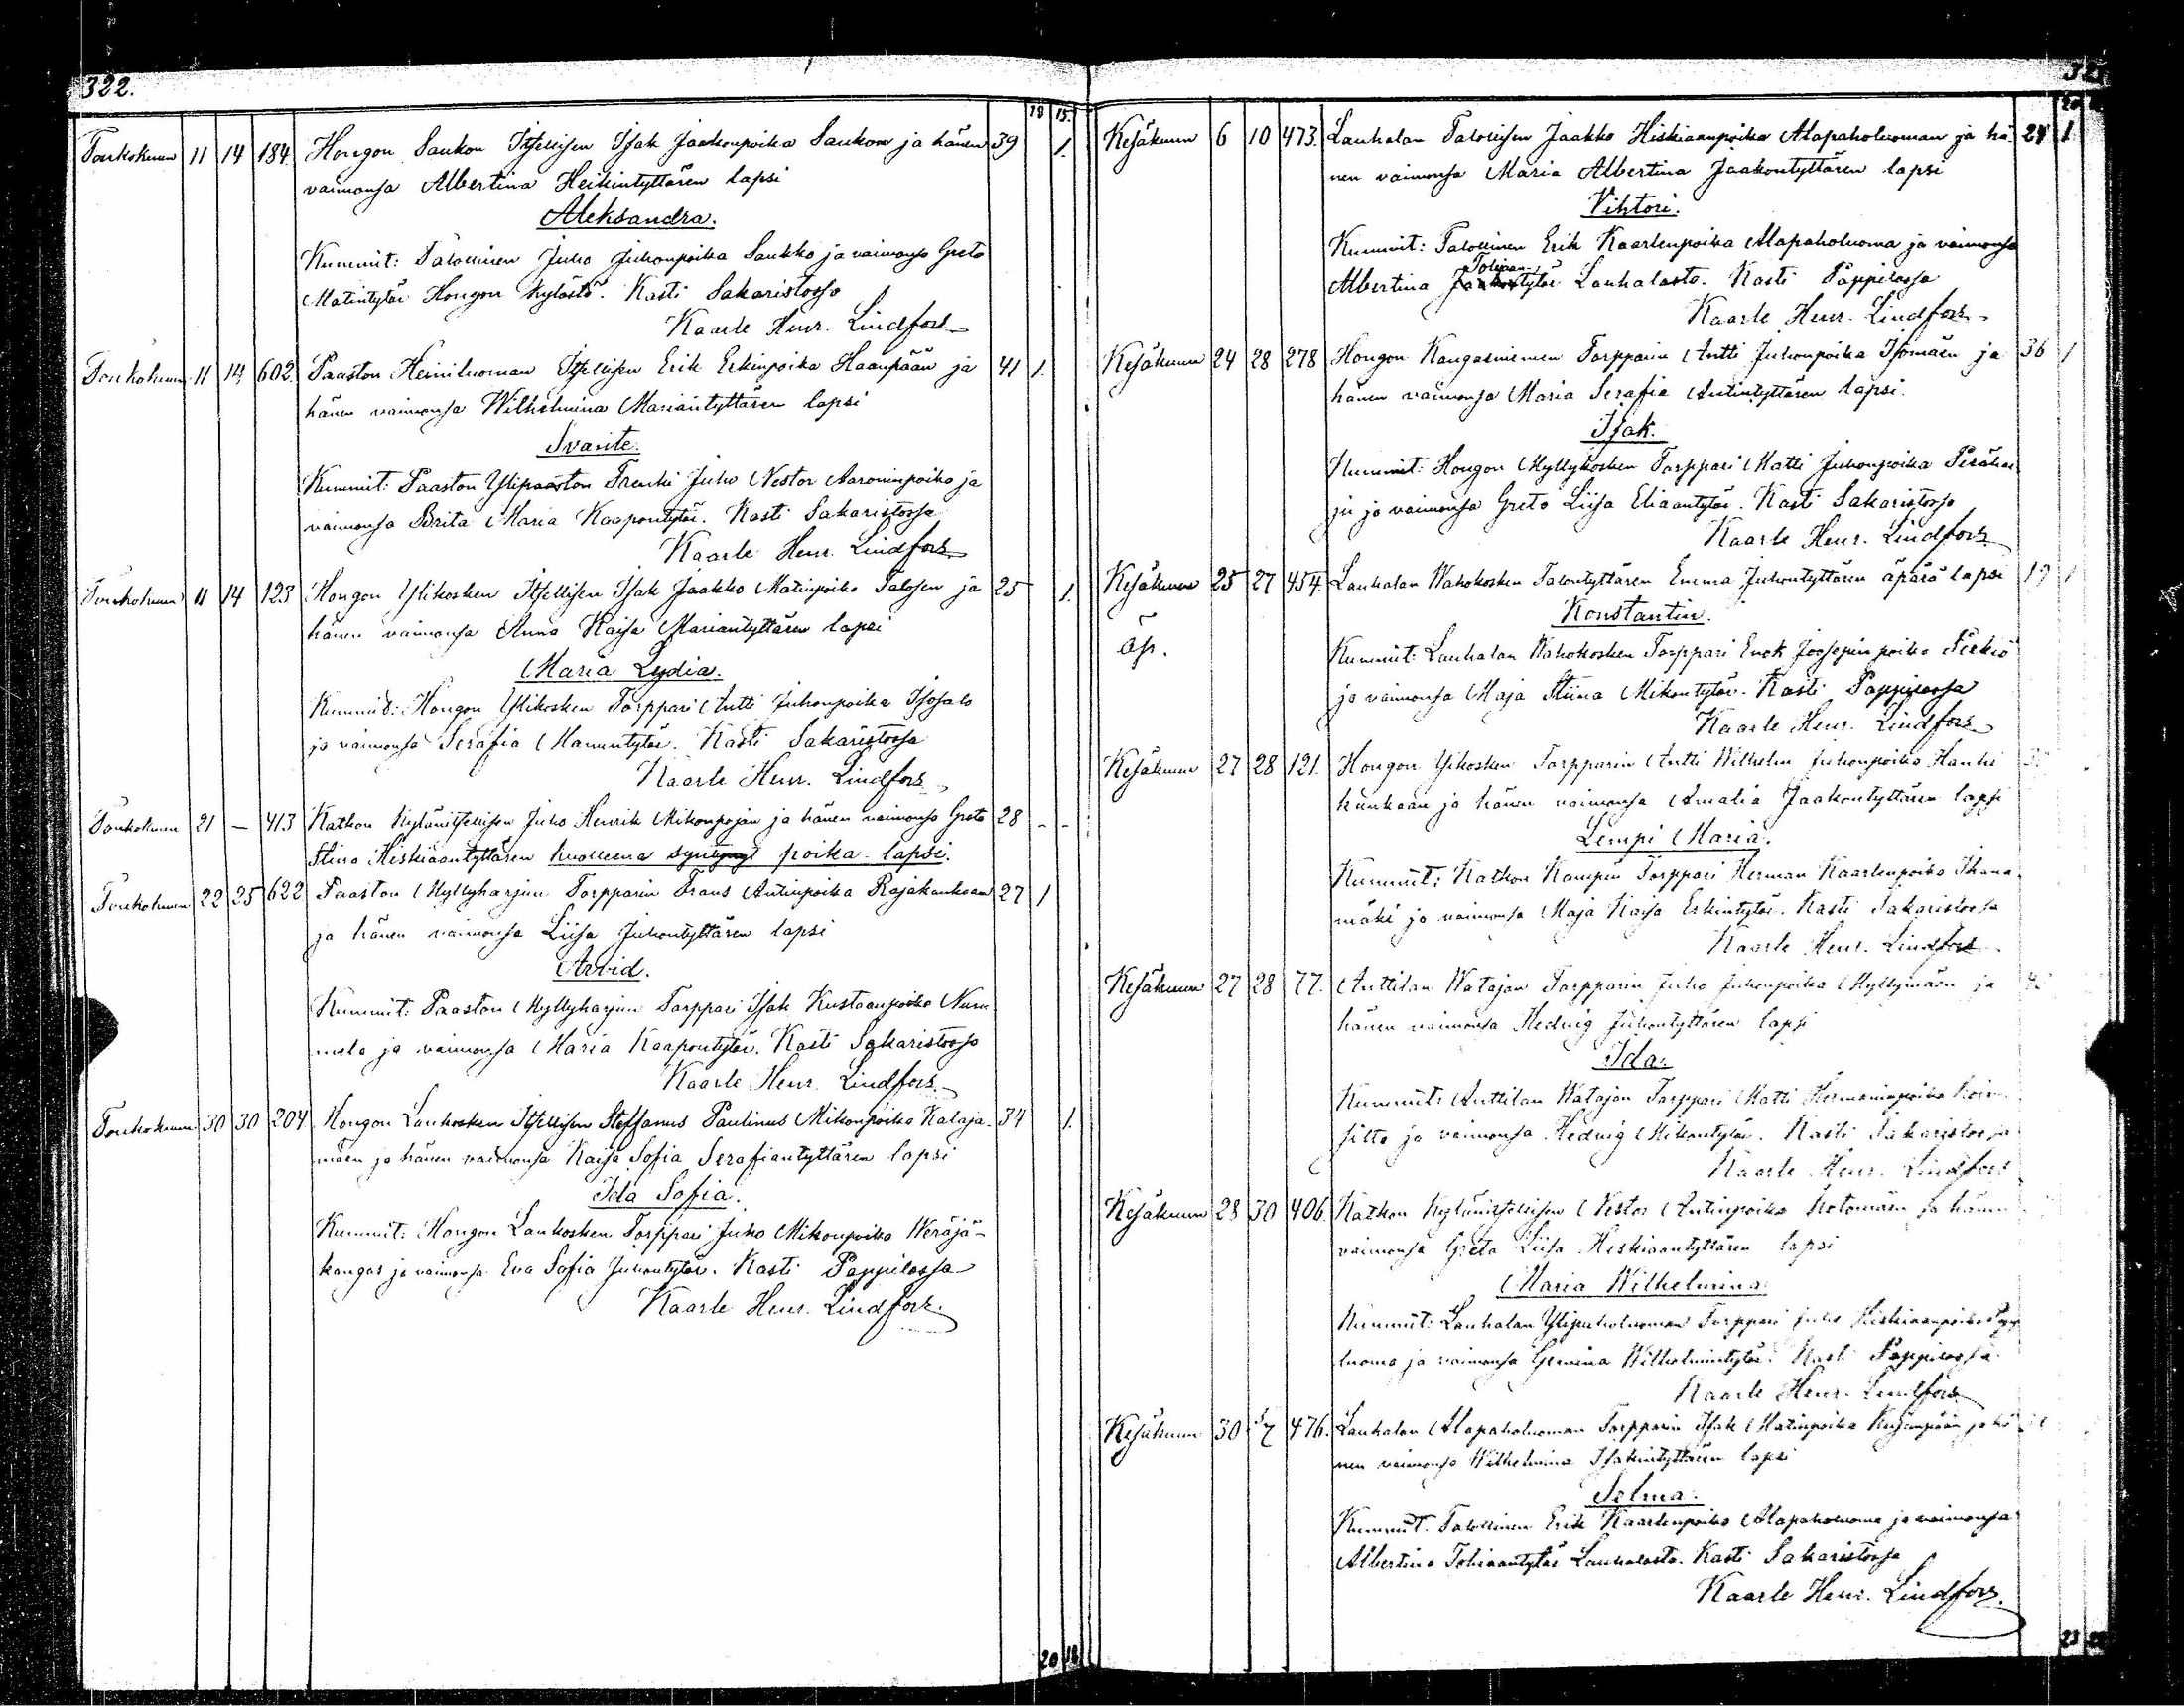 322.
18 15.
Toukokuun 11 14 184. Hongon Saukon Itsellisen Isak Jaakonpoika Saukon ja hänen 39 1.
vaimonsa Albertina Heikintyttären lapsi
Aleksandra.
Kummit: Talollinen Juho Juhonpoika Saukko ja vaimonsa Greta
Matintytär Hongon kylästä. Kasti Sakaristossa
Kaarle Henr. Lindfors
Toukokuun 11 14 602. Paaston Heiniluoman Itsellisen Erik Erkinpoika Haanpään ja 41 1.
hänen vaimonsa Wilhelmina Mariantyttären lapsi
Svante.
Kummit: Paaston Ylipaaston Trenki Juho Nestor Aaroninpoika ja
vaimonsa Brita Maria Kaapontytär. Kasti Sakaristossa
Kaarle Henr. Lindfors
Toukokuun 11 14 123 Hongon Ylikosken Itsellisen Isak Jaakko Matinpoika Salosen ja 25 1.
hänen vaimonsa Anna Kaisa Mariantyttären lapsi
Maria Lydia.
Kummit: Hongon Ylikosken Torppari Antti Juhonpoika Isosalo
ja vaimonsa Serafia Manuntytär. Kasti Sakaristossa
Kaarle Henr. Lindfors
Toukokuun 21 — 413 Katkon Kylänitsellisen Juho Henrik Mikonpojan ja hänen vaimonsa Greta 28 - -
Stina Hiskiaantyttären kuolleena syntynyt poika-lapsi.
Toukokuun 22 25 622 Paaston Myllyharjun Torpparin Frans Antinpoika Rajakankaan 27 1
ja hänen vaimonsa Liisa Juhontyttären lapsi
Arvid.
Kummit: Paaston Myllyharjun Torppari Isak Kustaanpoika Num
mela ja vaimonsa Maria Kaapontytär. Kasti Sakaristossa
Kaarle Henr. Lindfors.
Toukokuun 30 30 204 Hongon Laukosken Itsellisen Steffanus Paulinus Mikonpoika Kataja- 34 1.
mäen ja hänen vaimonsa Kaisa Sofia Serafiantyttären lapsi
Ida Sofia.
Kummit: Hongon Laukosken Torppari Juho Mikonpoika Weräjä-
kangas ja vaimonsa Eva Sofia Juhontytär. Kasti Pappilassa
Kaarle Henr. Lindfors.
20 18
Kesäkuun 6 10 473. Lauhalan Talollisen Jaakko Hiskiaanpoika Alapaholuoman ja hä- 24 1
nen vaimonsa Maria Albertina Jaakontyttären lapsi
Vihtori.
Kummit: Talollinen Erik Kaarlenpoika Alapaholuoma ja vaimonsa
Albertina Tobiaantytär Lauhalasta. Kasti Pappilassa
Kaarle Henr. Lindfors
Kesäkuun 24 28 278 Hongon Kangasniemen Torpparin Antti Juhonpoika Isomäen ja 36 1
hänen vaimonsa Maria Serafia Antintyttären lapsi.
Isak.
Kummit: Hongon Myllykosken Torppari Matti Juhonpoika Perähar
ju ja vaimonsa Greta Liisa Eliaantytär. Kasti Sakaristossa
Kaarle Henr. Lindfors
Kesäkuun 25 27 454. Lauhalan Wahokosken Talontyttären Emma Juhontyttären äpärä lapsi 19 1
Konstantin.
äp.
Kummit: Lauhalan Wahokosken Torppari Enok Joosepinpoika Sirkiö
ja vaimonsa Maja Stiina Mikontytär. Kasti Pappilassa
Kaarle Henr. Lindfors
Kesäkuun 27 28 121. Hongon Ylikosken Torpparin Antti Wilhelm Juhonpoika Hanhi
kankaan ja hänen vaimonsa Amalia Jaakontyttären lapsi
Lempi Maria.
Kummit: Katkon Kampin Torppari Herman Kaarlenpoika Ihana-
mäki ja vaimonsa Maja Kaisa Erkintytär. Kasti Sakaristossa
Kaarle Henr. Lindfors
Kesäkuun 27 28 77. Anttilan Watajan Torpparin Juho Juhonpoika Myllymäen ja
hänen vaimonsa Hedvig Juhontyttären lapsi
Ida.
Kummit: Anttilan Watajan Torppari Matti Hermaninpoika
ja vaimonsa Hedvig Mikontytär. Kasti Sakaristossa
Kaarle Henr. Lindfors
Kesäkuun 28 30 406. Katkon Kylänitsellisen Nestor Antinpoika Kotomäen ja hänen
vaimonsa Greta Liisa Heskiaantyttären lapsi
Maria Wilhelmina.
Kummit: Lauhalan Ylipaholuoman Torppari Juho Hiskiaanpoika
luoma ja vaimonsa Wilhelmintytär. Kasti Pappilassa.
Kaarle Henr. Lindfors
Kesäkuun 30 7 476. Lauhalan Alapaholuoman Torpparin Isak Matinpoika ja hä
nen vaimonsa Wilhelmina Isakintyttären lapsi
Selma.
Kummit. Talollinen Erik Kaarlenpoika Alapaholuoma ja vaimonsa
Albertina Tobiaantytär Lauhalasta. Kasti Sakaristossa
Kaarle Henr. Lindfors.
23